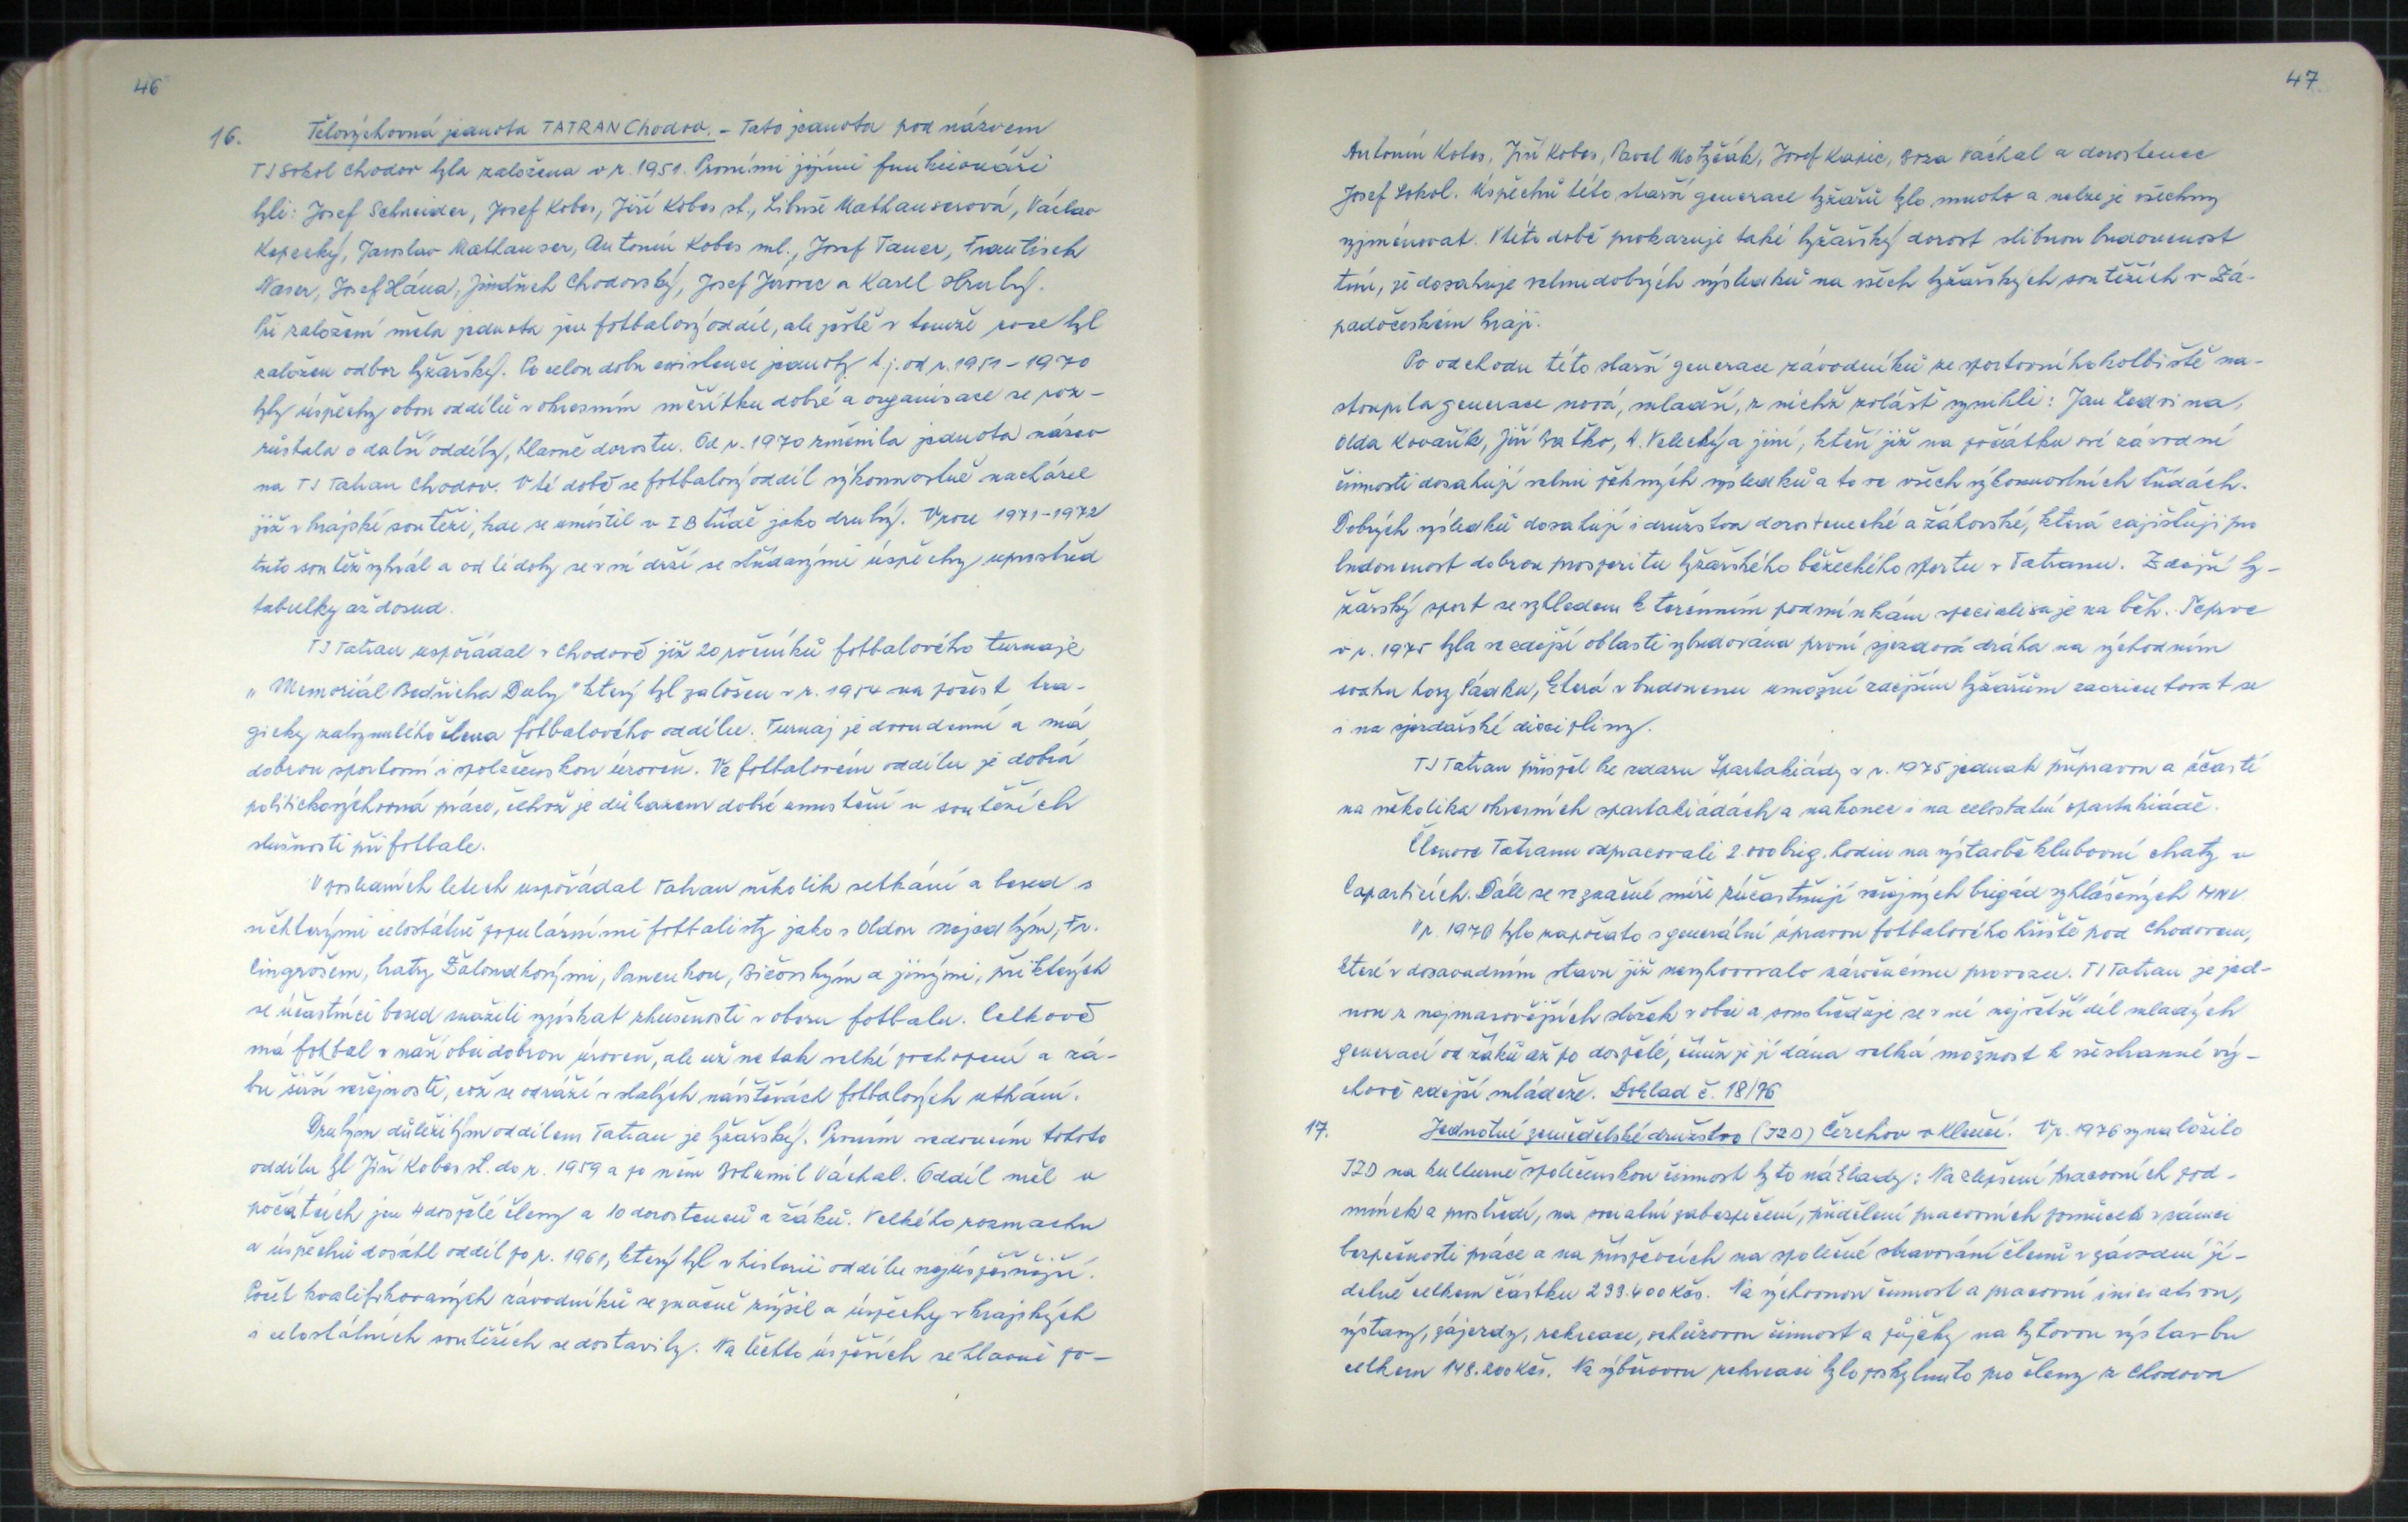 46
16. Tělovýchovná jednota TATRAN Chodov. - Tato jednota pod názvem
TJ Sokol Chodov byla založena v r. 1951. Prvními jejími funkcionáři
byli: Josef Schneider, Josef Kobes, Jiří Kobes st., Libuše Mathauserová, Václav
Kopecký, Jaroslav Mathauser, Antonín Kobes ml., Josef Tauer, František
Naser, Josef Hána, Jindřich Chodovský, Josef Jírovec a Karel Hrubý.
Při založení měla jednota jen fotbalový oddíl, ale ještě v témže roce byl
založen odbor lyžařský. Po celou dobu existence jednoty t.j. od r. 1951-1970
byly úspěchy obou oddílů v okresním měřítku dobré a organisace se roz-
růstala o další oddíly, hlavně dorostu. Od r. 1970 změnila jednota název
na TJ Tatran Chodov. V té době se fotbalový oddíl výkonnostně nacházel
již v krajské soutěži, kde se umístil v I B třídě jako druhý. V roce 1971-1972
tuto soutěž vyhrál a od té doby se v ní drží se střídavými úspěchy uprostřed
tabulky až dosud.
TJ Tatran uspořádal v Chodově již 20 ročníků fotbalového turnaje
"Memoriál Bedřicha Duby" který byl založen v r. 1954 na počest tra-
gicky zahynulého člena fotbalového oddílu. Turnaj je dvoudenní a má
dobrou sportovní i společenskou úroveň. Ve fotbalovém oddílu je dobrá
politickovýchovná práce, čehož je důkazem dobré umístění v soutěžích
slušnosti při fotbale.
V posledních letech uspořádal Tatran několik setkání a besed s
některými celostátně populárními fotbalisty jako s Oldou Nejedlým, Fr.
Cingrošem, bratry Žaloudkovými, Panenkou, Bičovským a jinými, při kterých
se účastníci besed snažili vyzískat zkušenosti v oboru fotbalu. Celkově
má fotbal v naší obci dobrou úroveň, ale už ne tak velké pochopení a zá-
bu širší veřejnosti, což se odráží v slabých návštěvách fotbalových utkání.
Druhým důležitým oddílem Tatran je lyžařský. Prvním vedoucím tohoto
oddílu byl Jiří Kobes st. do r. 1959 a po něm Bohumil Váchal. Oddíl měl v
počátcích jen 4 dospělé členy a 10 dorostenců a žáků. Velkého rozmachu
a úspěchů dosáhl oddíl po r. 1961, který byl v historii oddílu nejúspěšnější.
Počet kvalifikovaných závodníků se značně zvýšil a úspěchy v krajských
i celostátních soutěžích se dostavily. Na těchto úspěších se hlavně po-
47
Antonín Kobes, Jiří Kobes, Pavel Motyčák, Josef Kapic, Váchal a dorostenec
Josef Sokol. Úspěchů této starší generace lyžařů bylo mnoho a nelze je všechny
vyjmenovat. V této době prokazuje také lyžařský dorost slibnou budoucnost
tím, že dosahuje velmi dobrých výsledků na všech lyžařských soutěžích v Zá-
padočeském kraji.
Po odchodu této starší generace závodníků ze sportovního kolbiště na-
stoupila generace nová, mladší, z nichž zvlášť vynikli: Jan Ledvina,
Olda Kovařík, Jiří Baťko, V. Velecký a jiní, kteří již na počátku své závodní
činnosti dosahují velmi pěkných výsledků a to ve všech výkonnostních třídách.
Dobrých výsledků dosahují i družstva dorostenecké a žákovské, která zajišťují pro
budoucnost dobrou prosperitu lyžařského běžeckého sportu v Tatranu. Zdejší ly-
žařský sport se vzhledem k terénním podmínkám specialisuje na běh. Teprve
v r. 1975 byla ve zdejší oblasti vybudována první sjezdová dráha na východním
svahu hory Sádku, která v budoucnu umožní zdejším lyžařům zaorientovat se
i na sjezdařské disciplíny.
TJ Tatran přispěl ke zdaru Spartakiády v r. 1975 jednak přípravou a účastí
na několika okresních spartakiádách a nakonec i na celostátní spartakiádě.
Členové Tatranu odpracovali 2.000 brig. hodin na výstavbě klubovní chaty v
Caparticích. Dále se ve značné míře zúčastňují veřejných brigád vyhlášených MNV.
V r. 1976 bylo započato s generální úpravou fotbalového hřiště pod Chodovem,
které v dosavadním stavu již nevyhovovalo náročnému provozu. TJ Tatran je jed-
nou z nejmasovějších složek v obci a soustřeďuje se v ní největší díl mladých
generací od žáků až po dospělé, čímž je jí dána velká možnost k všestranné vý-
chově zdejší mládeže. Doklad č. 18/76
17. Jednotné zemědělské družstvo (JZD) Čerchov v Klenčí. V r. 1976 vynaložilo
JZD na kulturně společenskou činnost tyto náklady: Na zlepšení pracovních pod-
mínek a prostředí, na sociální zabezpečení, přidělení pracovních pomůcek v rámci
bezpečnosti práce a na příspěvcích na společné stravování členů v závodní jí-
delně celkem částku 299.400 Kčs. Na výchovnou činnost a pracovní iniciativu,
výstavy, zájezdy, rekreace, schůzovou činnost a půjčky na bytovou výstavbu
celkem 148.200 Kčs. Na výběrovou rekreaci bylo poskytnuto pro členy z Chodova